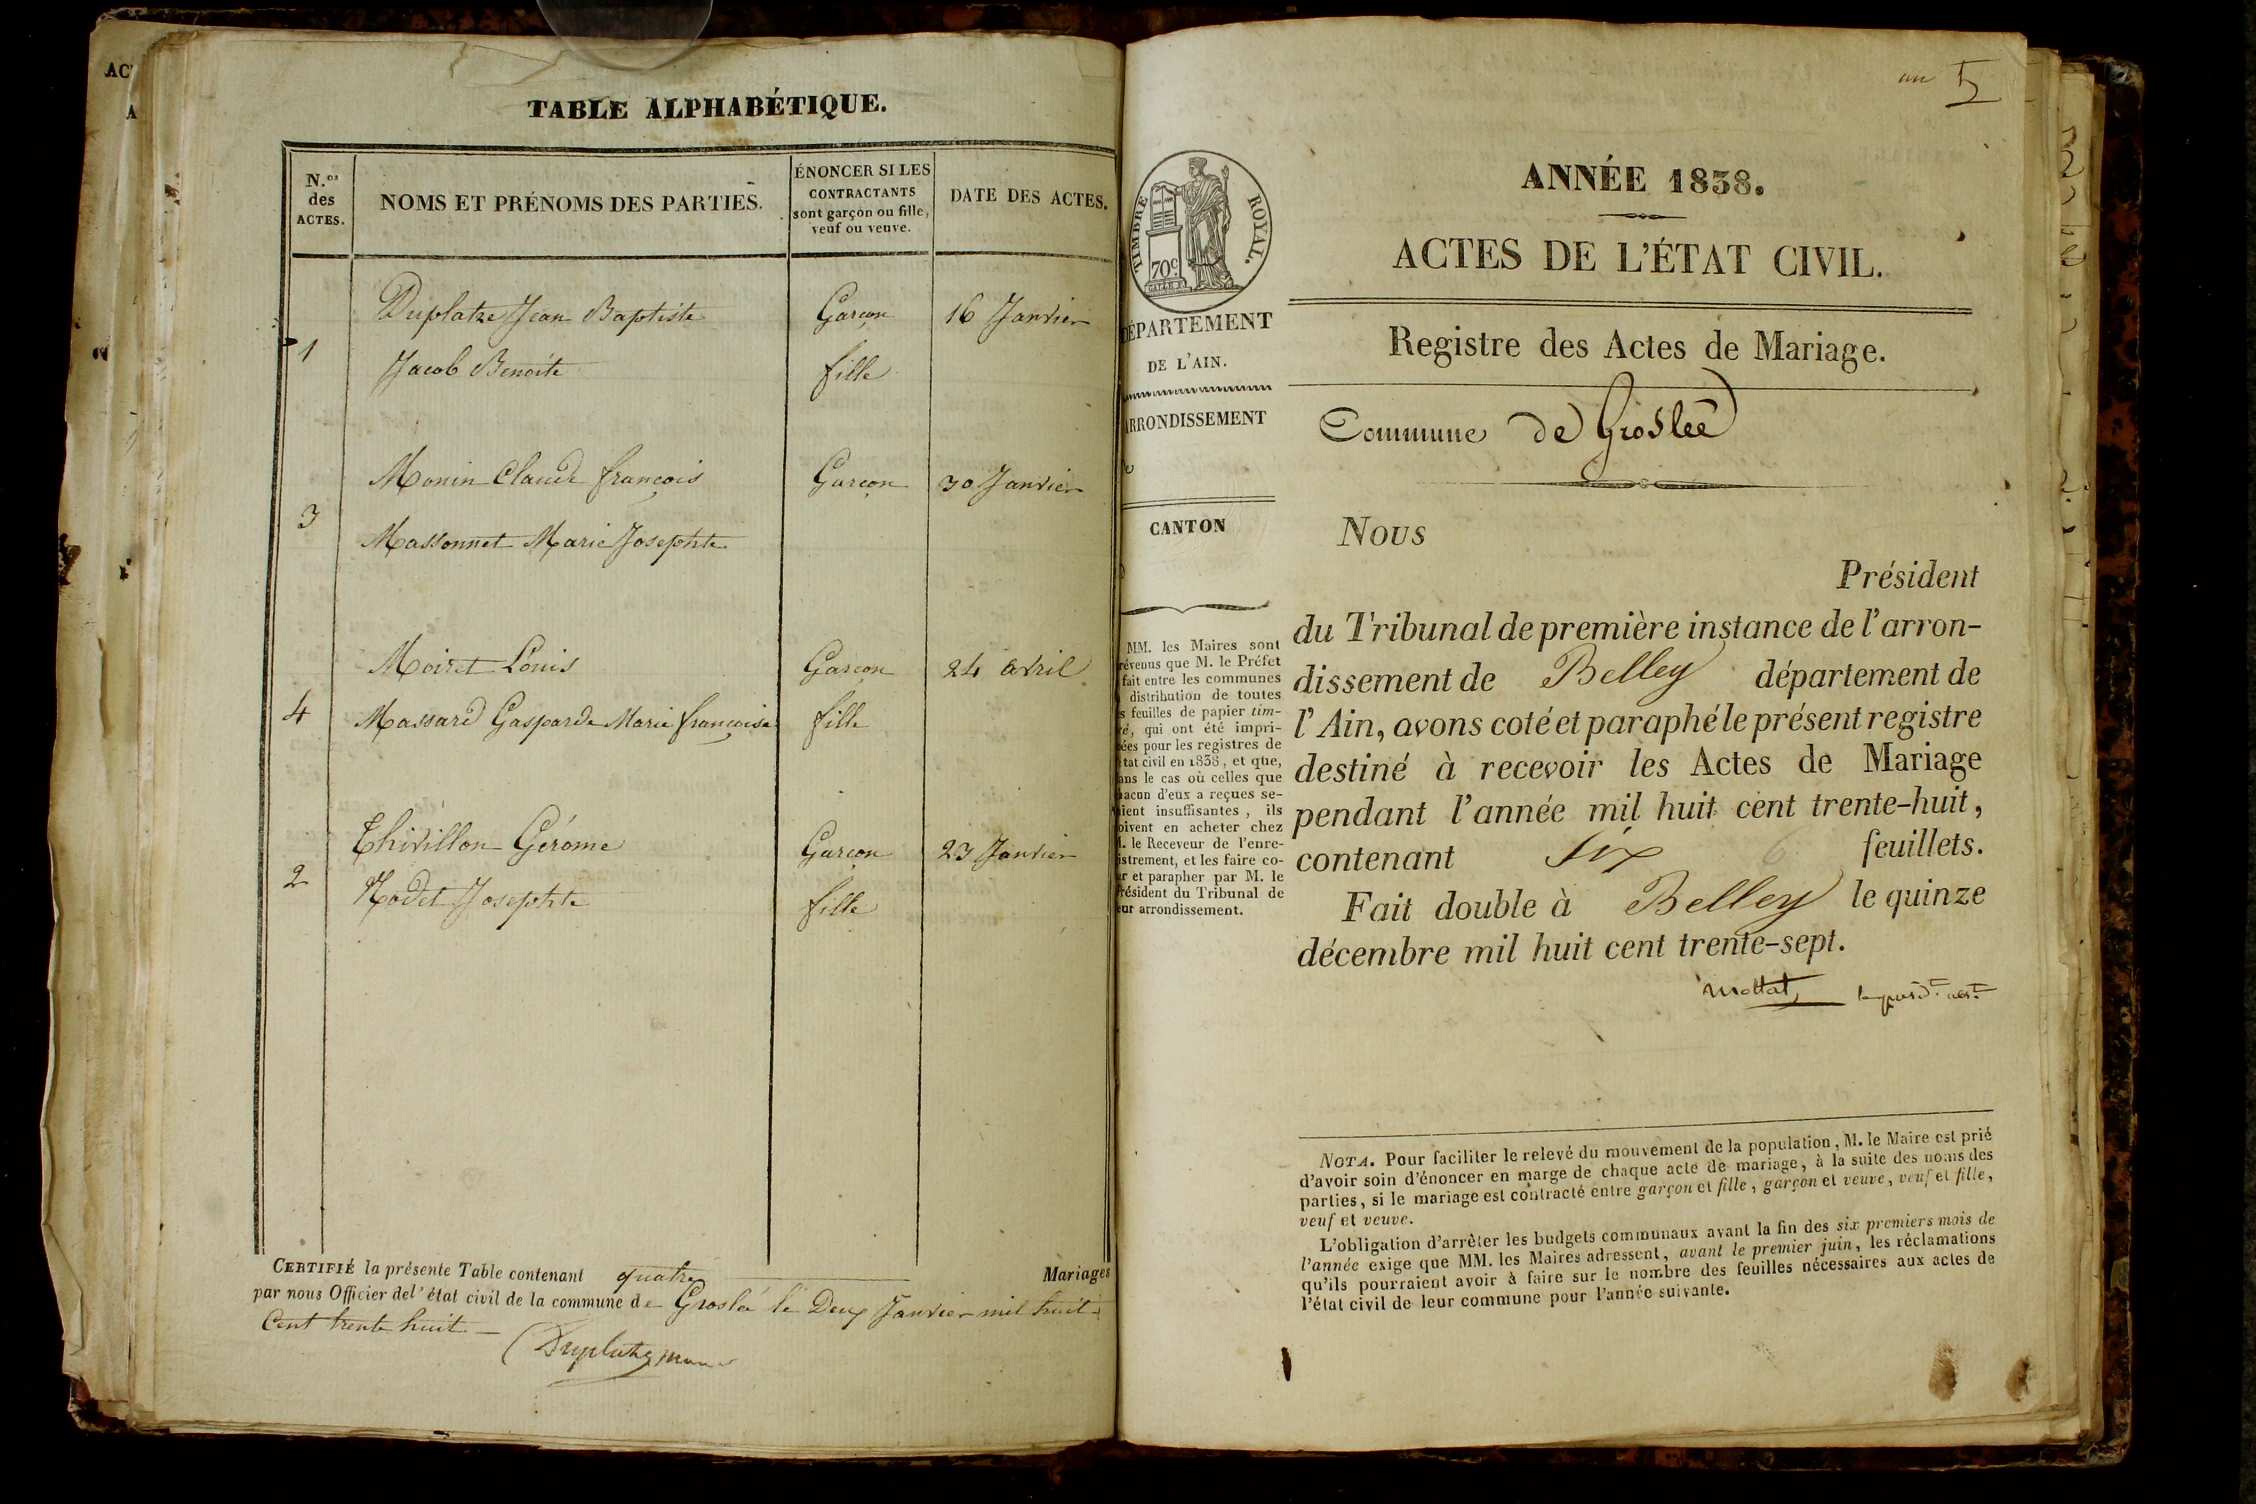 TABLE ALPHABÉTIQUE.
N.os des ACTES.
NOMS ET PRÉNOMS DES PARTIES.
ÉNONCER SI LES
CONTRACTANTS
sont garçon ou fille,
veuf ou veuve.
DATE DES ACTES.
Duplatre Jean Baptiste Garçon 16 Janvier
1
Jacob Benoite fille
Monin Claude françois Garçon 30 Janvier
3
Massonnet Marie Josephte
Moiret Louis Garçon 24 avril
4 Massard Gasparde Marie françoise fille
Thivillon Gérome Garçon 23 Janvier
2
Nodet Josephte fille
CERTIFIÉ la présente Table contenant quatre Mariages
par nous Officier de l'état civil de la commune de Groslée le Deux Janvier mil huit
Cent trente huit
Duplatre maire
AC
A
5
TIMBRE ROYAL.
70c
DÉPARTEMENT
DE L'AIN.
ARRONDISSEMENT
CANTON
MM. les Maires sont
révenus que M. le Préfet
fait entre les communes
distribution de toutes
s feuilles de papier tim-
ré, qui ont été impri-
ées pour les registres de
tat civil en 1838, et que,
ans le cas où celles que
hacun d'eux a reçues se-
aient insuffisantes, ils
oivent en acheter chez
M. le Receveur de l'enre-
istrement, et les faire co-
er et parapher par M. le
Président du Tribunal de
eur arrondissement.
ANNÉE 1838.
ACTES DE L'ÉTAT CIVIL.
Registre des Actes de Mariage.
Commune de Groslée
Nous
Président
du Tribunal de première instance de l'arron-
dissement de Belley département de
l'Ain, avons coté et paraphé le présent registre
destiné à recevoir les Actes de Mariage
pendant l'année mil huit cent trente-huit,
contenant six 6 feuillets.
Fait double à Belley le quinze
décembre mil huit cent trente-sept.
NOTA. Pour faciliter le relevé du mouvement de la population, M. le Maire est prié
d'avoir soin d'énoncer en marge de chaque acte de mariage, à la suite des noms des
parties, si le mariage est contracté entre garçon et fille, garçon et veuve, veuf et fille,
veuf et veuve.
L'obligation d'arrêter les budgets communaux avant la fin des six premiers mois de
l'année exige que MM. les Maires adressent, avant le premier juin, les réclamations
qu'ils pourraient avoir à faire sur le nombre des feuilles nécessaires aux actes de
l'état civil de leur commune pour l'année suivante.